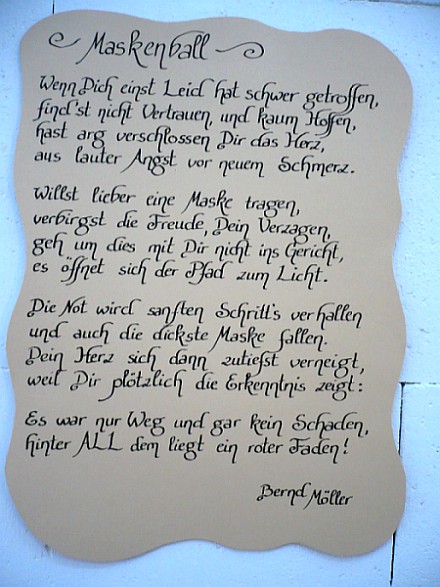 Maskenball
Wenn Dich einst Leid hat schwer getroffen,
find'st nicht Vertrauen, und kaum Hoffen,
hast arg verschlossen Dir das Herz,
aus lauter Angst vor neuem Schmerz.
Willst lieber eine Maske tragen,
verbirgst die Freude, Dein Verzagen,
geh um dies mit Dir nicht ins Gericht,
es öffnet sich der Pfad zum Licht.
Die Not wird sanften Schritt's verhallen
und auch die dickste Maske fallen.
Dein Herz sich dann zutiefst verneigt,
weil Dir plötzlich die Erkenntnis zeigt:
Es war nur Weg und gar kein Schaden,
hinter ALL dem liegt ein roter Faden!
Bernd Möller